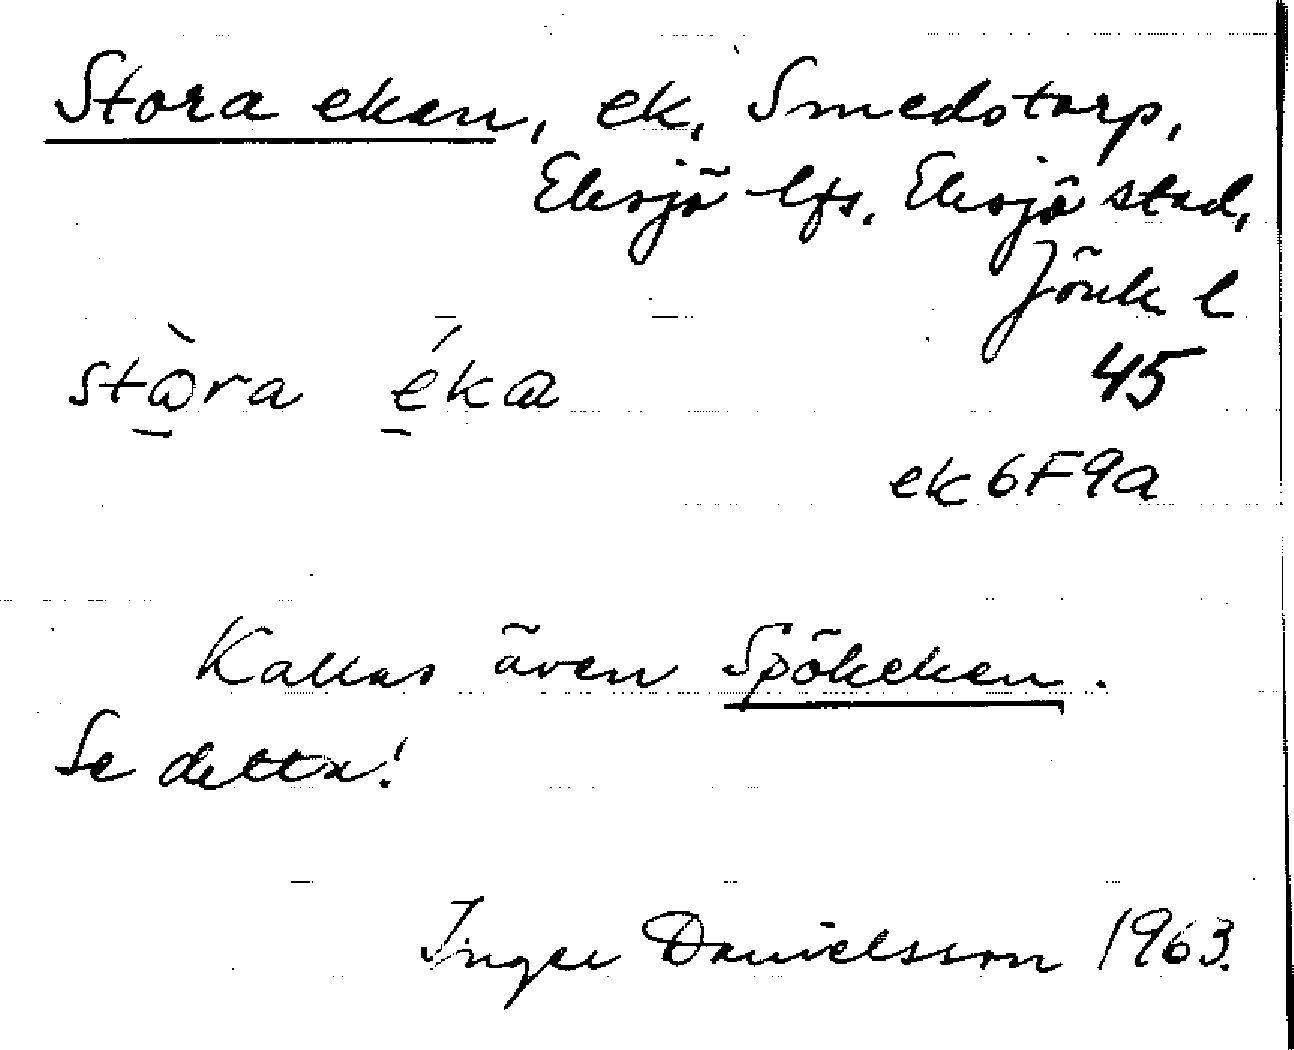 Stora eken, ek, Smedstorp,
Eksjö lfs. Eksjö stad,
Jönk l
45
stòra éka
ek 6F9a
Kallas även Spökeken.
Se detta!
Inger Danielsson 1963.